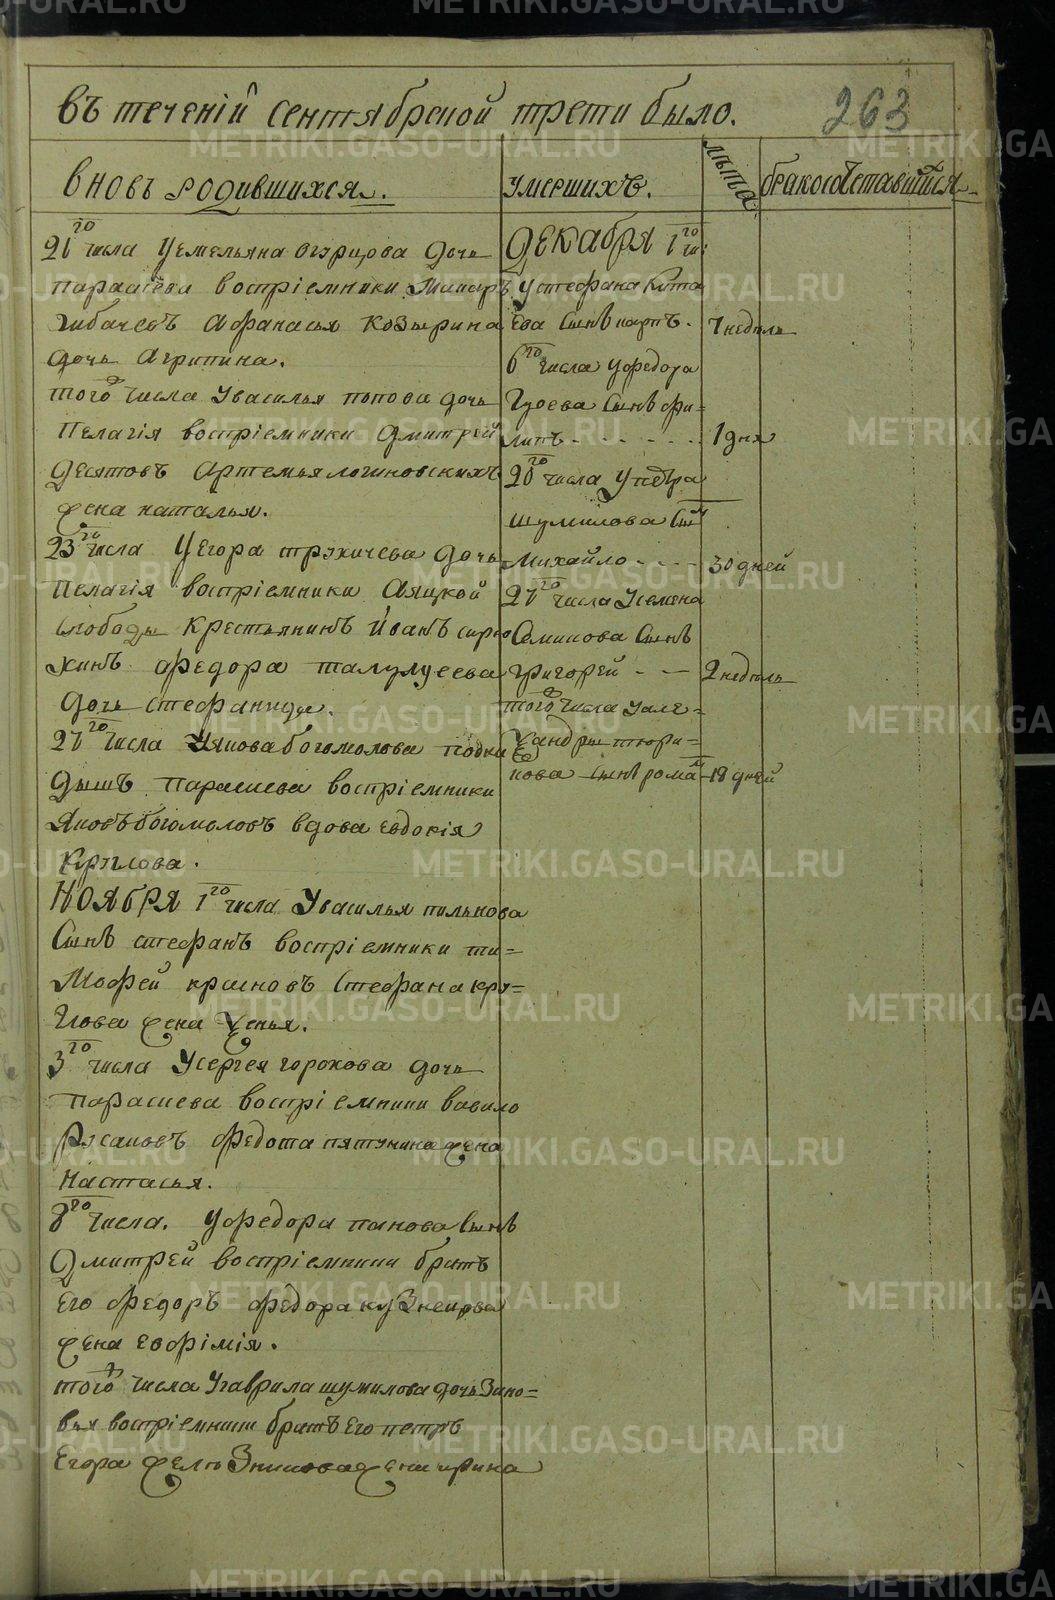 въ теченій сентябрской трети было.
263
вновь родившихся.
умершихъ.
лѣта
бракосочетавшихся
21го числа Уемельяна огурцова дочь
параскева воспріемники Макаръ
Чибачевъ Афанасья козырина
дочь Агрипина.
того числа Увасилья попова дочь
Пелагія воспріемники дмитрей
десятовъ Артемья логиновскихъ
жена наталья.
23го числа Уегора трухичева дочь
Пелагія воспріемники Аяцкой
слободы крестьянинъ Иванъ
федора
дочь стефанида.
27го числа Уякова богомолова подки
дышъ параскева воспріемники
Яковъ богомоловъ вдова евдокія
Крылова.
НОЯБРЯ 1го числа Увасилья пилькова
Сынъ стефанъ воспріемники ти=
Мофей красновъ Стефана кру=
глова жена Ксенья.
3го числа Усергея горохова дочь
парасцева воспріемники вавило
Русаковъ федота пятунина жена
настасья.
8го числа. Уфедора панова Сынъ
Дмитрей воспріемники братъ
Его федоръ федора кузнецова
жена евфимія.
того числа Угаврила шумилова дочь Зино=
вья воспріемники братъ Его петръ
Егора жена ирина
ДЕКАБРЯ 1го чи:
Устефана Кота
ева Сынъ карпъ.
7 недѣль
6го числа Уфедора
Гуоева Сынъ фи=
липъ - - - - - -
1 дня
20го числа Упетра
шумилова Сынъ
Михайло - - - -
30 дней
27го числа Усемена
Семинова Сынъ
григорей - - -
2 недѣль
того числа Уале=
ксандры тюри=
кова Сынъ романъ
18 дней
METRIKI.GASO-URAL.RU